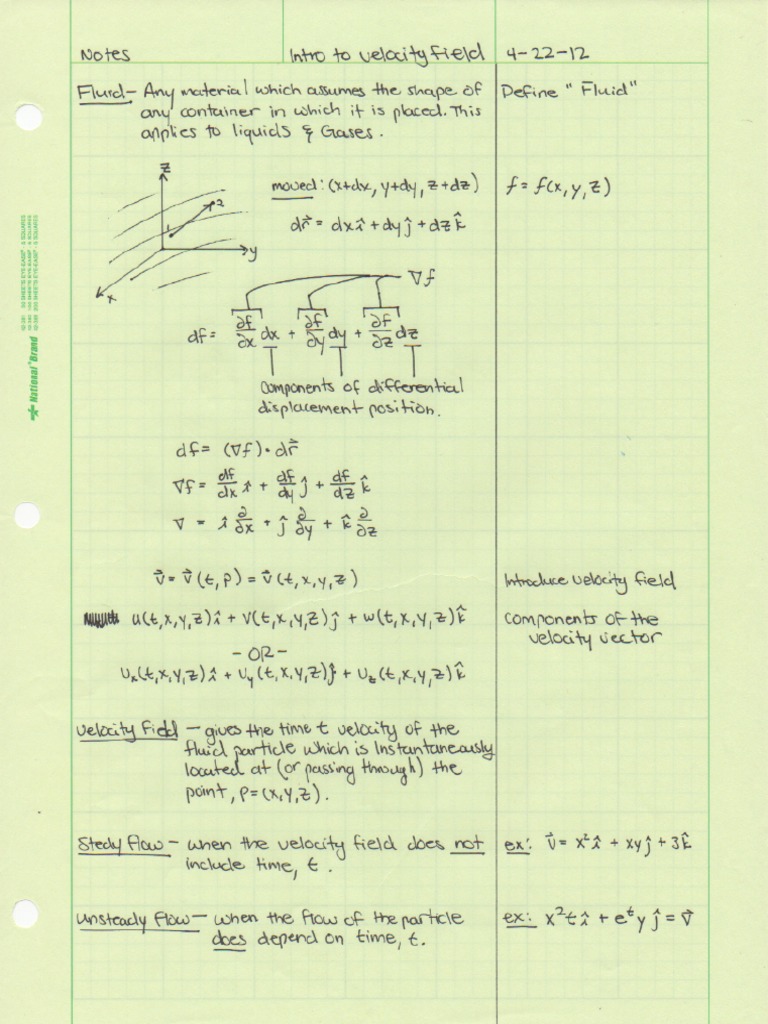 Notes
Intro to velocity field
4-22-12
Fluid - Any material which assumes the shape of
any container in which it is placed. This
applies to liquids & Gases.
Define "Fluid"
z
2
1
y
x
moved: (x+dx, y+dy, z+dz)
f = f(x, y, z)
dr⃗ = dx î + dy ĵ + dz k̂
∇f
df = ∂f/∂x dx + ∂f/∂y dy + ∂f/∂z dz
Components of differential
displacement position.
df = (∇f) • dr⃗
∇f = df/dx î + df/dy ĵ + df/dz k̂
∇ = î ∂/∂x + ĵ ∂/∂y + k̂ ∂/∂z
v⃗ = v⃗(t, P) = v⃗(t, x, y, z)
Introduce velocity field
u(t, x, y, z) î + v(t, x, y, z) ĵ + w(t, x, y, z) k̂
components of the
velocity vector
- OR -
Ux(t, x, y, z) î + Uy(t, x, y, z) ĵ + Uz(t, x, y, z) k̂
velocity Field - gives the time t velocity of the
fluid particle which is Instantaneously
located at (or passing through) the
point, P=(x, y, z).
Stedy flow - when the velocity field does not
include time, t.
ex: v⃗ = x² î + xy ĵ + 3 k̂
unsteady Flow - when the flow of the particle
does depend on time, t.
ex: x²t î + eᵗy ĵ = v⃗
National® Brand